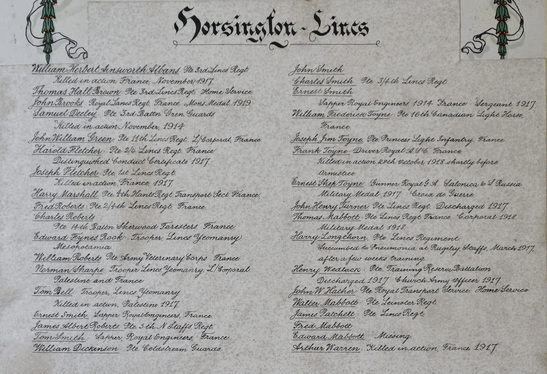 Horsington - Lincs
William Herbert Ainsworth Albans Pte 3rd Lincs Regt
Killed in action, France, November 1917
Thomas Hall Brown Pte 3rd Lincs Regt Home Service
John Brooks Royal Lancs Regt France Mons Medal 1919
Samuel Pte 3rd Batta Gren Guards
Killed in action, November, 1914
John William Green Pte Lincs Regt L/Corporal, France
Harold Fletcher Pte 2/4 Lincs Regt France
Distinguished Conduct Certificate 1917
Joseph Fletcher Pte 1st Lincs Regt
Killed in action, France 1917
Harry Marshall Pte 5th Hunts Regt Transport Sect France
Fred Roberts Pte 2/4th Lincs Regt France
Charles Roberts
Pte 14th Batta Sherwood Foresters France
Edward Fynes Rock Trooper, Lincs Yeomanry
Mesopotamia
William Roberts Pte Army Veterinary Corps France
Norman Sharpe Trooper Lincs Yeomanry L/Corporal
Palestine and France
Tom Bell Trooper, Lincs Yeomanry
Killed in action, Palestine 1917
Ernest Smith Sapper Royal Engineers, France
James Albert Roberts Pte 5th N Staffs Regt
Tom Smith Sapper, Royal Engineers, France
William Dickenson Pte Coldstream Guards
John Smith
Charles Smith Pte 3/4th Lincs Regt
Ernest Smith
Sapper Royal Engineers 1914 France Sergeant 1917
William Frederick Toyne Pte 16th Canadian Light Horse
France
Joseph Toyne Pte Princess Light Infantry France
Frank Toyne Driver Royal France
Killed in action 20th October 1918 shortly before
Armistice
Ernest Toyne Gunner Royal G.A. Salonica & S Russia
Military Medal, 1917 Croix de Guerre
John Henry Turner Pte Lincs Regt Discharged 1917
Thomas Mabbott Pte Lincs Regt France Corporal 1918
Military Medal 1918
Harry Longthorn Pte Lincs Regiment
Succumbed to Pneumonia at Rugeley Staffs, March 1917
after a few weeks training
Henry Pte Training Reserve Battalion
Discharged 1917 Church Army officer 1917
John W Pte Royal Transport Service Home Service
Walter Mabbott Pte Leinster Regt
James Patchett Pte Lincs Regt
Fred Mabbott
Edward Mabbott Missing
Arthur Warren Killed in action, France 1917